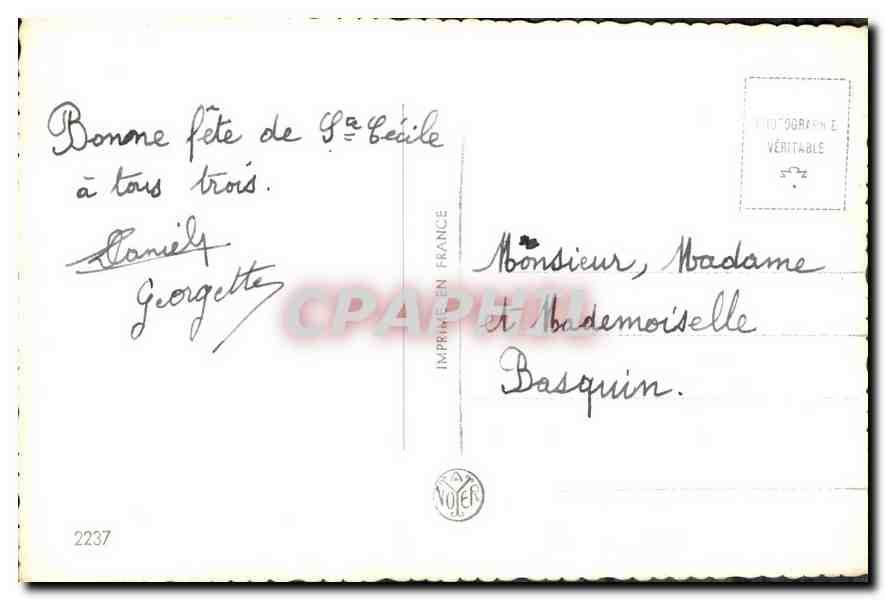 Bonne fête de Ste Cécile
à tous trois.
Daniel
Georgette
IMPRIMÉ EN FRANCE
PHOTOGRAPHIE
VÉRITABLE
Monsieur, Madame
et Mademoiselle
Basquin.
CPAPHIL
NOYER
2237